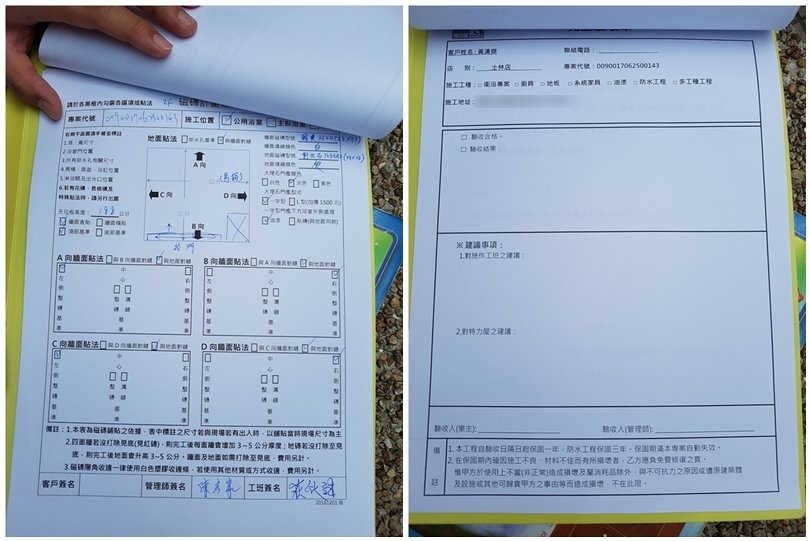 請於各黑框內勾選各選項或貼法
專案代號 施工位置 公用浴室 主臥浴室
右側平面圖請手繪並標註
1.長、寬尺寸
2.浴室門位置
3.所有排水孔相關尺寸
4.馬桶、面盆、浴缸位置
5.淋浴間及出水口位置
6.若有花磚、長條磚及
特殊貼法時,請另行出圖
天花板高度: 188 公分
牆面直貼 牆面橫貼
頂部基準 底部基準
地面貼法 排水孔基準 與牆面對縫
A 向
公分
C 向
D 向
公分
B 向
拉門
牆面磁磚型號
牆面填縫顏色 白
地面磁磚型號
地面填縫顏色
大理石門檻顏色
白色 米色 黑色
大理石門檻型式
一字型 L型(加價1500元)
一字型門檻下方浴室外側處理
油漆 貼磚(與地面同款)
A 向牆面貼法 與 B 向牆面對縫 與地面對縫
左側整磚基準
中心 整磚 溝縫 基準
右側整磚基準
B 向牆面貼法 與 A 向牆面對縫 與地面對縫
左側整磚基準
中心 整磚 溝縫 基準
右側整磚基準
C 向牆面貼法 與 D 向牆面對縫 與地面對縫
左側整磚基準
中心 整磚 溝縫 基準
右側整磚基準
D 向牆面貼法 與 C 向牆面對縫 與地面對縫
左側整磚基準
中心 整磚 溝縫 基準
右側整磚基準
備註:1.本表為磁磚鋪貼之依據,表中標註之尺寸若與現場若有出入時,以鋪貼當時現場尺寸為主
2.四面牆若沒打除見底(見紅磚),則完工後每面牆會增加 3~5 公分厚度;地磚若沒打除至見
底,則完工後地面會升高 3~5 公分,牆面及地面如需打除至見底,費用另計。
3.磁磚陽角收邊一律使用白色塑膠收邊條,若使用其他材質或方式收邊,費用另計。
客戶簽名 管理師簽名 工班簽名
20161201 版
客戶姓名: 黃漢傑 聯絡電話:
店 別: 士林店 專案代號:0090017062500143
施工工種: □ 衛浴專案 □ 廚具 □ 地板 □ 系統家具 □ 油漆 □ 防水工程 □ 多工種工程
施工地址:
□ 驗收合格。
□ 驗收結果:
※ 建議事項:
1.對施作工班之建議:
2.對特力屋之建議:
驗收人(業主): 驗收人(管理師):
備註
1. 本工程自驗收日隔日起保固一年,防水工程保固三年。保固期滿本專案自動失效。
2. 在保固期內確因施工不良、材料不佳而有所損壞者,乙方應負免費修復之責。
惟甲方於使用上不當(非正常)造成損壞及屬消耗品除外,與不可抗力之原因或遭原建築體
及設施或其他可歸責甲方之事由等而造成損壞,不在此限。